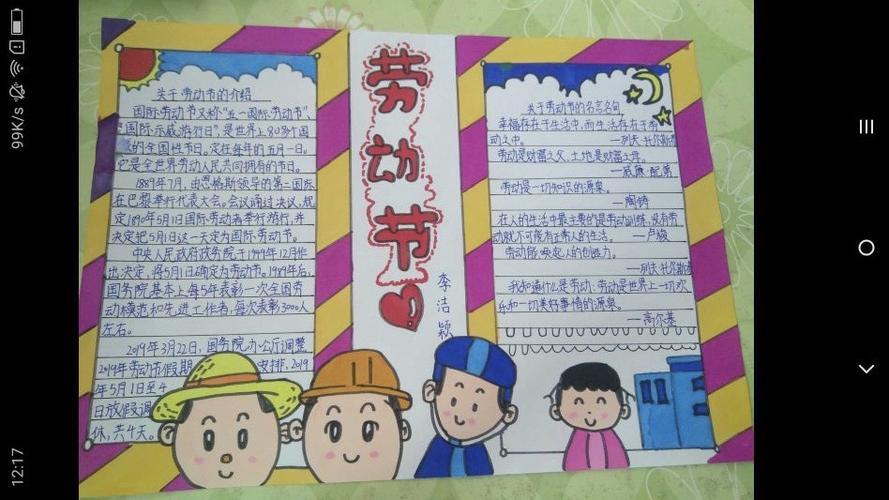 劳动节
李洁颖
关于劳动节的介绍
国际劳动节又称"五一国际劳动节"、
"国际示威游行日",是世界上80多个国
家的全国性节日。定在每年的五月一日。
它是全世界劳动人民共同拥有的节日。
1889年7月,由恩格斯领导的第二国际
在巴黎举行代表大会。会议通过决议,规
定1890年5月1日国际劳动者举行游行,并
决定把5月1日这一天定为国际劳动节。
中央人民政府政务院于1949年12月作
出决定,将5月1日确定为劳动节。1989年后,
国务院基本上每5年表彰一次全国劳
动模范和先进工作者,每次表彰3000人
左右。
2019年3月22日,国务院办公厅调整
2019年劳动节假期 安排,2019
年5月1日至4
日放假调
休,共4天。
关于劳动节的名言名句
幸福存在于生活中,而生活存在于劳
动之中。 —列夫·托尔斯泰
劳动是财富之父,土地是财富之母。
—威廉·配第
劳动是一切知识的源泉。
—陶铸
在人的生活中最主要的是劳动训练,没有劳
动就不可能有正常人的生活。 —卢梭
劳动能唤起人的创造力。
—列夫·托尔斯泰
我知道什么是劳动:劳动是世界上一切欢
乐和一切美好事情的源泉。
—高尔基
99K/s
12:17